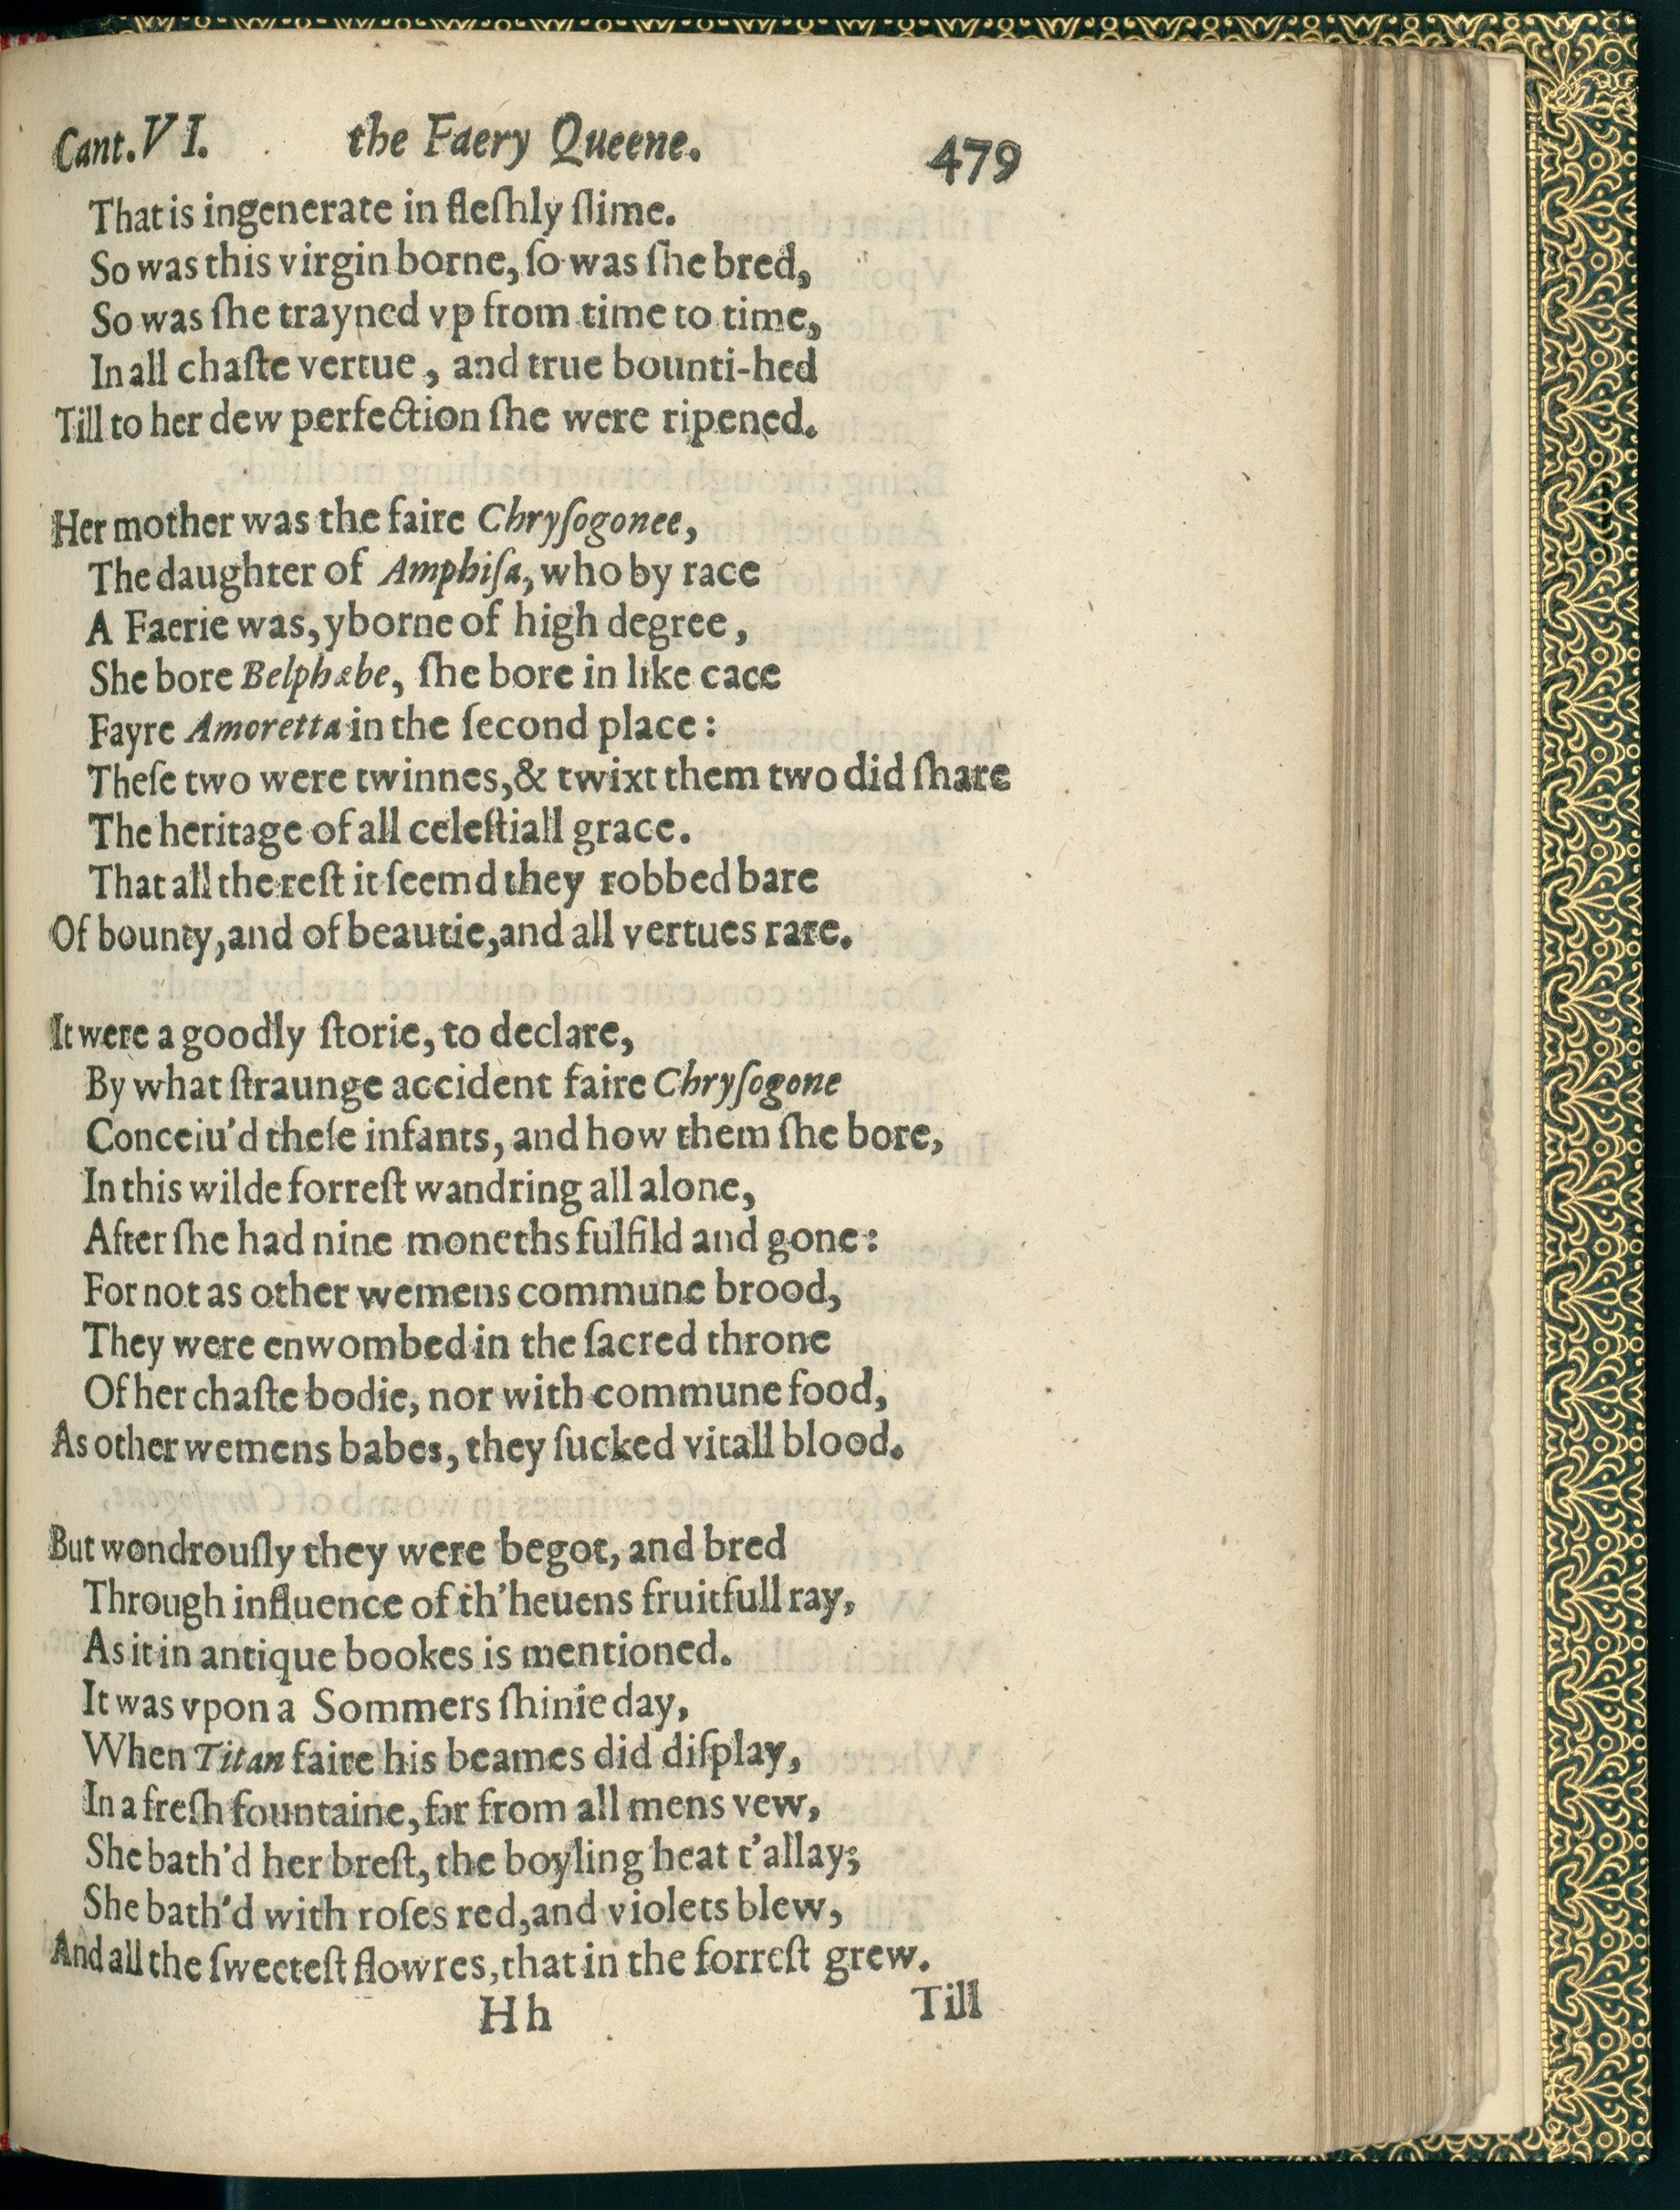 Cant. VI. the Faery Queene. 479
That is ingenerate in fleſhly ſlime.
So was this virgin borne, ſo was ſhe bred,
So was ſhe trayned vp from time to time,
In all chaſte vertue, and true bounti-hed
Till to her dew perfection ſhe were ripened.
Her mother was the faire Chryſogonee,
The daughter of Amphiſa, who by race
A Faerie was, yborne of high degree,
She bore Belphæbe, ſhe bore in like cace
Fayre Amoretta in the ſecond place:
Theſe two were twinnes, & twixt them two did ſhare
The heritage of all celeſtiall grace.
That all the reſt it ſeemd they robbed bare
Of bounty, and of beautie, and all vertues rare.
It were a goodly ſtorie, to declare,
By what ſtraunge accident faire Chryſogone
Conceiu'd theſe infants, and how them ſhe bore,
In this wilde forreſt wandring all alone,
After ſhe had nine moneths fulfild and gone:
For not as other wemens commune brood,
They were enwombed in the ſacred throne
Of her chaſte bodie, nor with commune food,
As other wemens babes, they ſucked vitall blood.
But wondrouſly they were begot, and bred
Through influence of th'heuens fruitfull ray,
As it in antique bookes is mentioned.
It was vpon a Sommers ſhinie day,
When Titan faire his beames did diſplay,
In a freſh fountaine, far from all mens vew,
She bath'd her breſt, the boyling heat t'allay;
She bath'd with roſes red, and violets blew,
And all the ſweeteſt flowres, that in the forreſt grew.
Hh Till